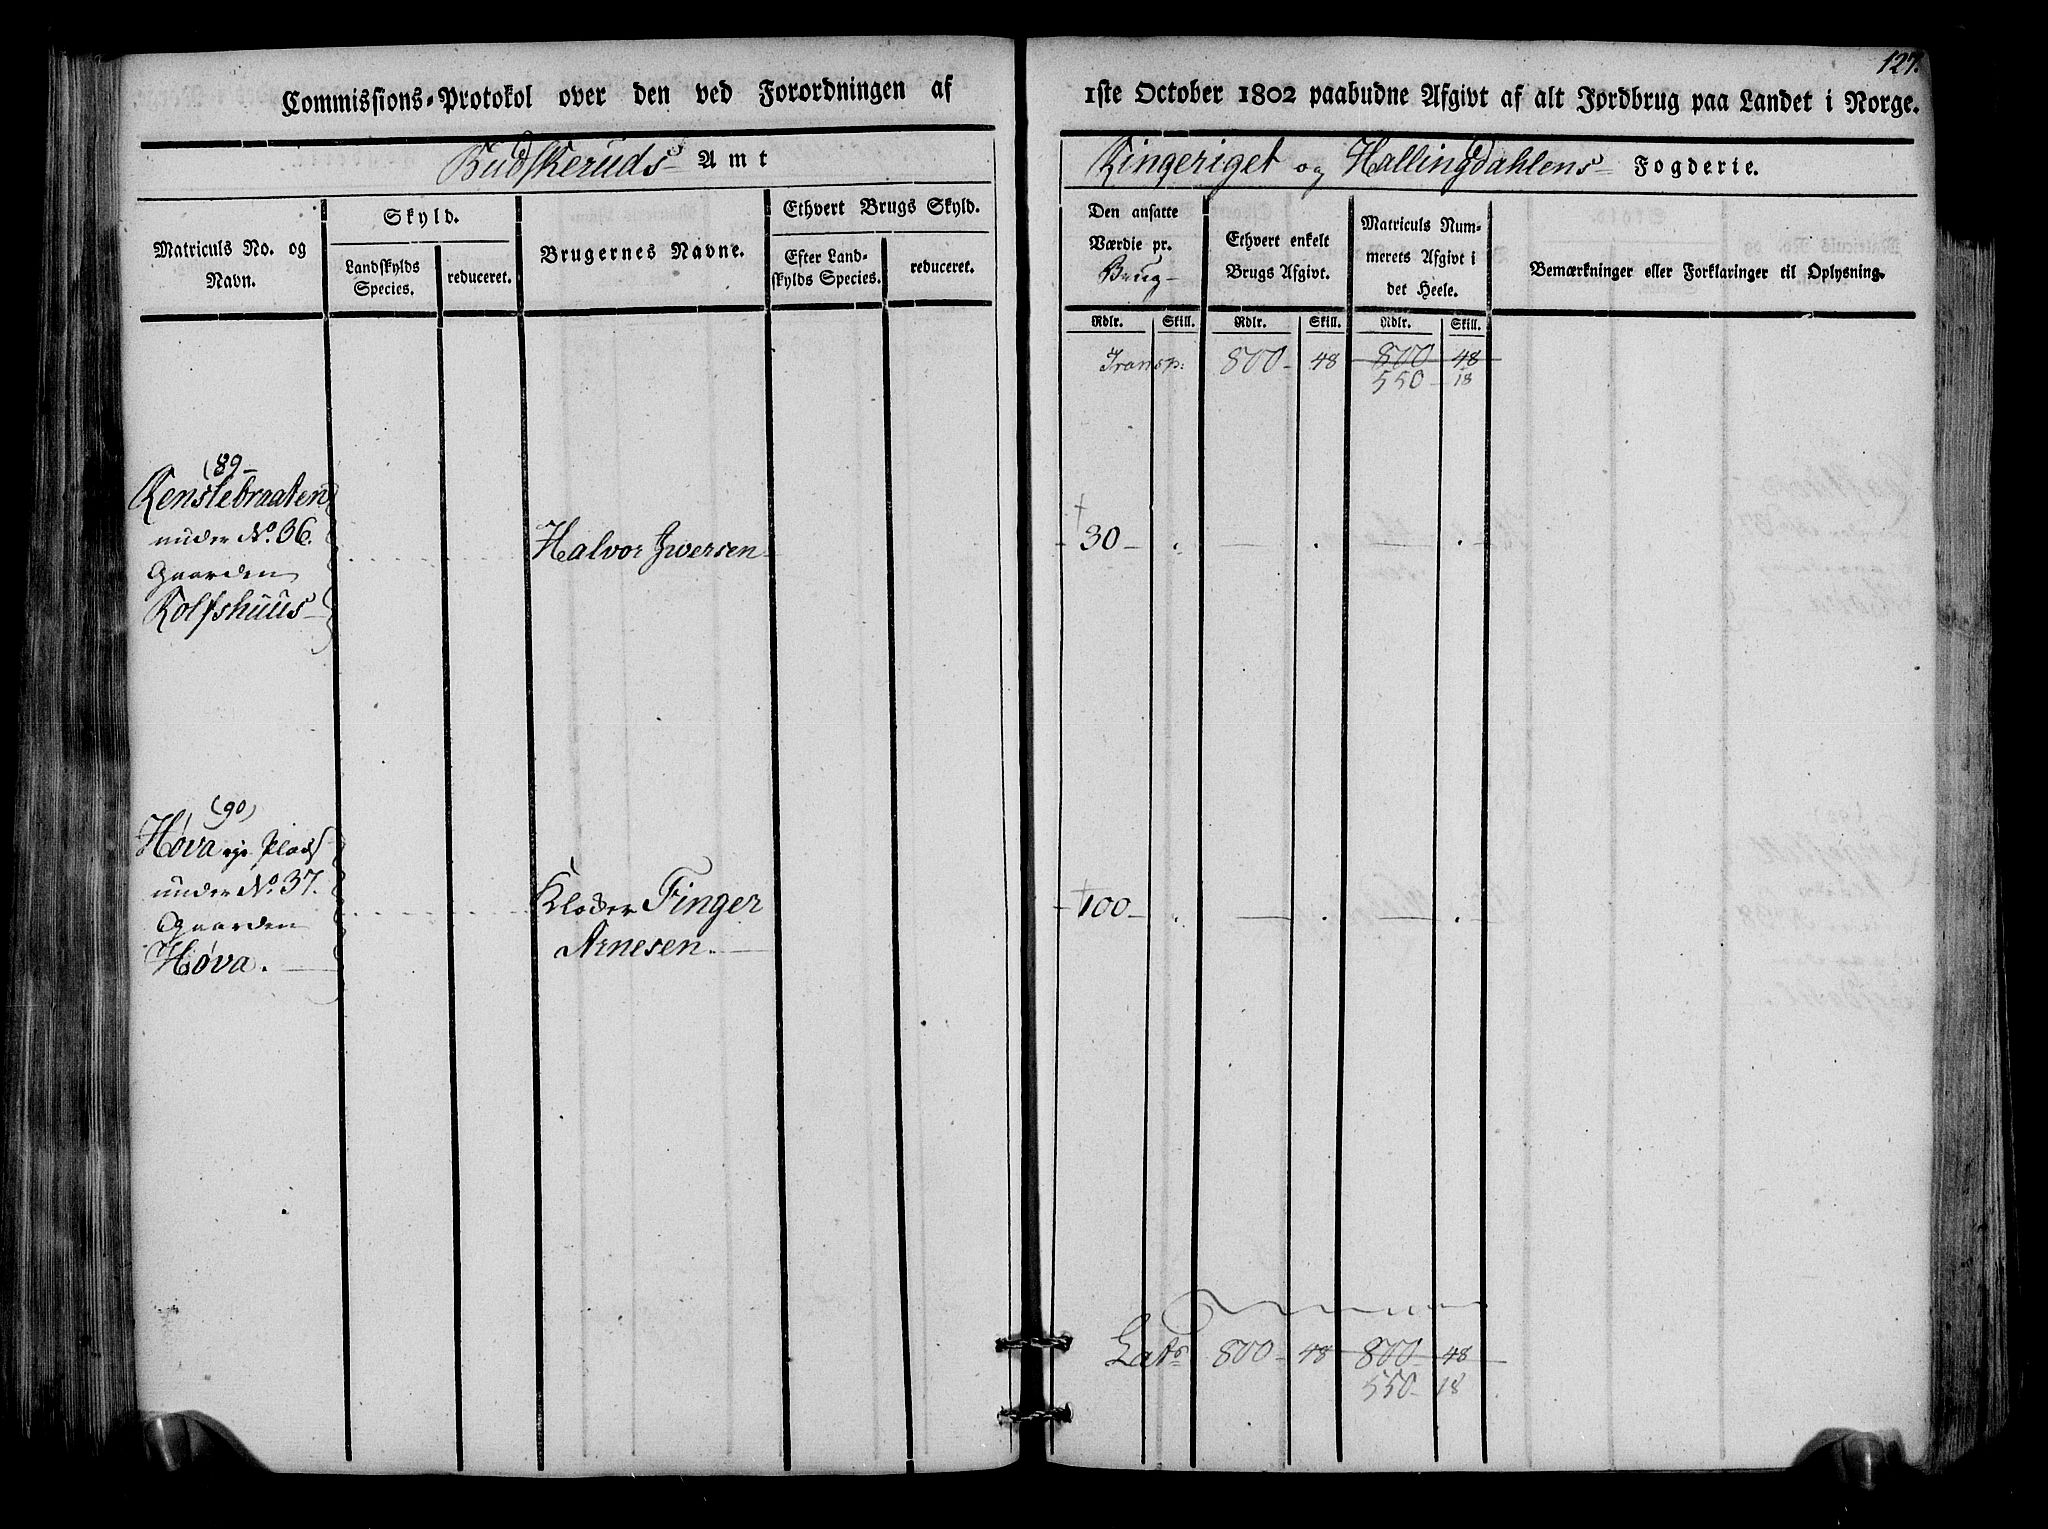 127.
Commissions-Protokol over den ved Forordningen af 1ste October 1802 paabudne Afgivt af alt Jordbrug paa Landet i Norge.
Budskeruds Amt
Ringeriget og Hallingdahlens Fogderie.
Matriculs No. og Navn.
Skyld.
Landskylds Species.
reduceret.
Brugernes Navne.
Ethvert Brugs Skyld.
Efter Landskylds Species.
reduceret.
Den ansatte Værdie pr. Brug
Ethvert enkelt Brugs Afgivt.
Matriculs Nummerets Afgivt i det Heele.
Bemærkninger eller Forklaringer til Oplysning.
Rdlr. Skill. Rdlr. Skill. Rdlr. Skill.
Transp: 800 - 48 800 48
550 - 18
(89
Renslebraaten
under No. 36.
Gaarden
Rolfshuus
Halvor Iwersen
30 -
(90)
Høva eje Plads
under No. 37.
Gaarden
Høva.
Finger
Arnesen.
100 -
Lats 800 - 48 800 - 48
550 - 18